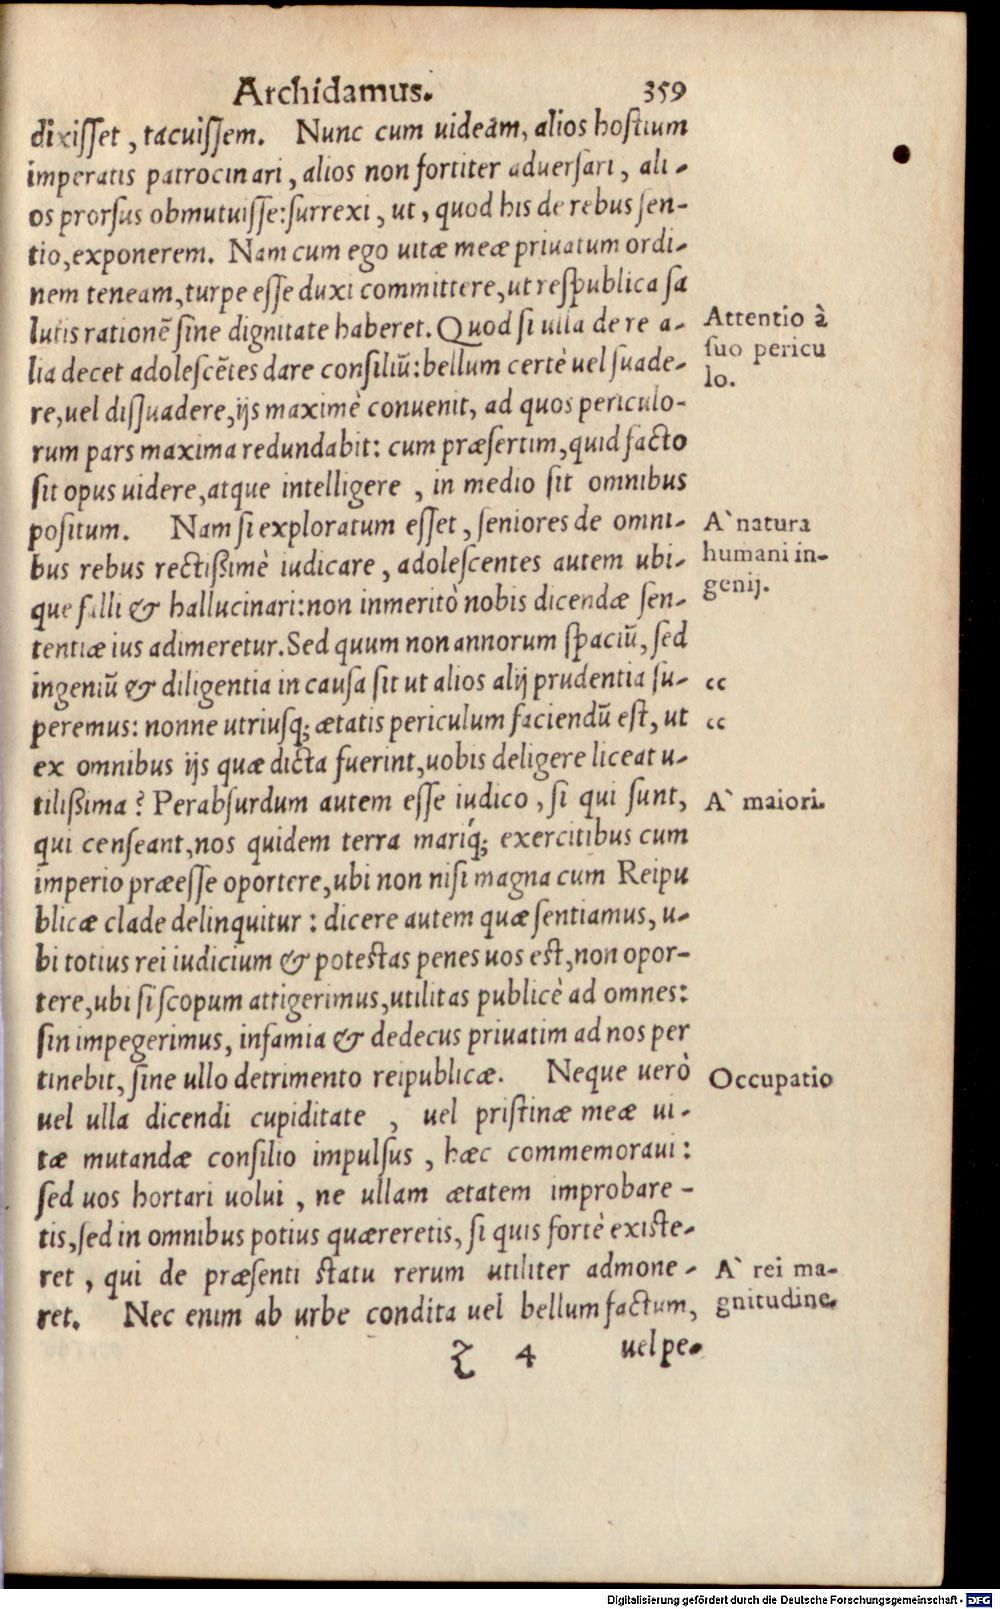 Archidamus. 359
dixiſſet, tacuiſſem. Nunc cum uideam, alios hoſtium
imperatis patrocinari, alios non fortiter aduerſari, ali-
os prorſus obmutuiſſe: ſurrexi, ut, quod his de rebus ſen-
tio, exponerem. Nam cum ego uitæ meæ priuatum ordi-
nem teneam, turpe eſſe duxi committere, ut reſpublica ſa
lutis rationē ſine dignitate haberet. Quod ſi ulla de re a-
lia decet adoleſcētes dare conſiliū: bellum certè uel ſuade-
re, uel diſſuadere, ijs maximè conuenit, ad quos periculo-
rum pars maxima redundabit: cum præſertim, quid facto
ſit opus uidere, atque intelligere, in medio ſit omnibus
poſitum. Nam ſi exploratum eſſet, ſeniores de omni-
bus rebus rectißimè iudicare, adoleſcentes autem ubi-
que falli & hallucinari: non inmeritò nobis dicendæ ſen-
tentiæ ius adimeretur. Sed quum non annorum ſpaciū, ſed
ingeniū & diligentia in cauſa ſit ut alios alij prudentia ſu-
peremus: nonne utriuſq; ætatis periculum faciendū eſt, ut
ex omnibus ijs quæ dicta fuerint, uobis deligere liceat u-
tilißima? Perabſurdum autem eſſe iudico, ſi qui ſunt,
qui cenſeant, nos quidem terra mariq́; exercitibus cum
imperio præeſſe oportere, ubi non niſi magna cum Reipu
blicæ clade delinquitur: dicere autem quæ ſentiamus, u-
bi totius rei iudicium & poteſtas penes uos eſt, non opor-
tere, ubi ſi ſcopum attigerimus, utilitas publicè ad omnes:
ſin impegerimus, infamia & dedecus priuatim ad nos per
tinebit, ſine ullo detrimento reipublicæ. Neque uerò
uel ulla dicendi cupiditate, uel priſtinæ meæ ui-
tæ mutandæ conſilio impulſus, hæc commemoraui:
ſed uos hortari uolui, ne ullam ætatem improbare-
tis, ſed in omnibus potius quæreretis, ſi quis fortè exiſte-
ret, qui de præſenti ſtatu rerum utiliter admone-
ret. Nec enim ab urbe condita uel bellum factum,
Z 4 uel pe-
Attentio à
ſuo pericu
lo.
A` natura
humani in-
genij.
“
“
A` maiori.
Occupatio
A` rei ma-
gnitudine.
Digitalisierung gefördert durch die Deutsche Forschungsgemeinschaft - DFG